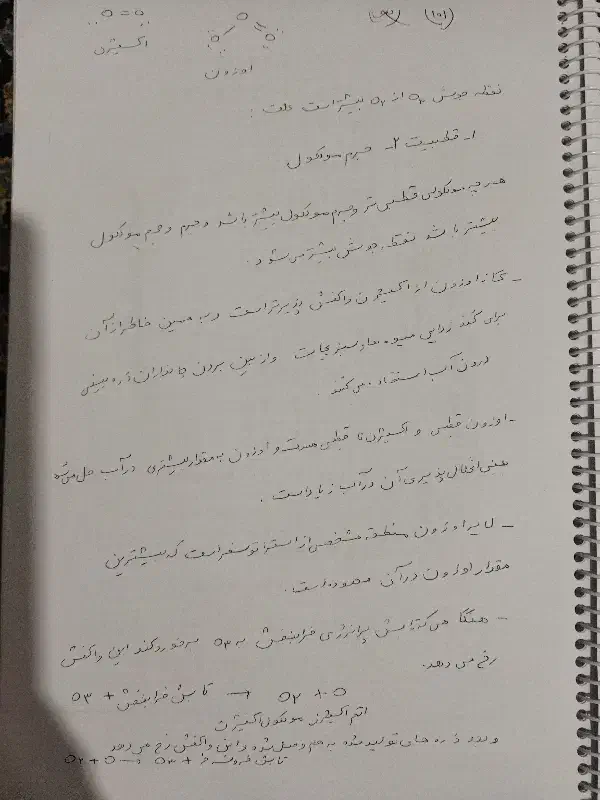 (۱۵۱)
O = O
O
O O
اکسیژن
اوزون
نقطه جوش O۳ از O۲ بیشتر است علت :
۱- قطبیت ۲- جرم مولکول
هرچه مولکول قطبی تر و جرم مولکول بیشتر باشد و جرم و حجم مولکول
بیشتر باشد نقطه جوش بیشتر می شود .
- گاز اوزون از اکسیژن واکنش پذیرتر است و به همین خاطر از آن
برای گند زدایی میوه ها و سبزیجات و از بین بردن جانداران ذره بینی
درون آب استفاده می کنند .
- اوزون قطبی و اکسیژن نا قطبی هست و اوزون به مقدار بیشتری در آب حل می شه
یعنی انحلال پذیری آن در آب زیاد است .
- لایه اوزون منطقه مشخصی از استراتوسفر است که بیشترین
مقدار اوزون در آن محدوده است .
- هنگامی که تابش پر انرژی فرابنفش به O۳ برخورد کند این واکنش
رخ می دهد.
تابش فرابنفش + O۳ → O۲ + O
اتم اکسیژن مولکول اکسیژن
و بعد ذره های تولید شده به هم وصل شده و این واکنش رخ می دهد
O۲ + O → O۳ + تابش فروسرخ